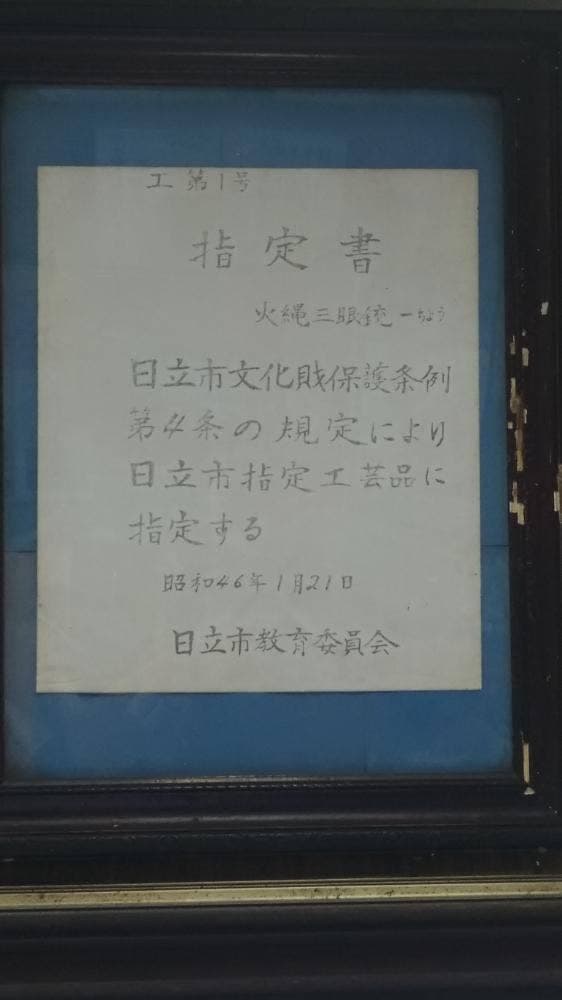 工第1号
指定書
火縄三眼銃一ちょう
日立市文化財保護条例
第4条の規定により
日立市指定工芸品に
指定する
昭和46年1月21日
日立市教育委員会